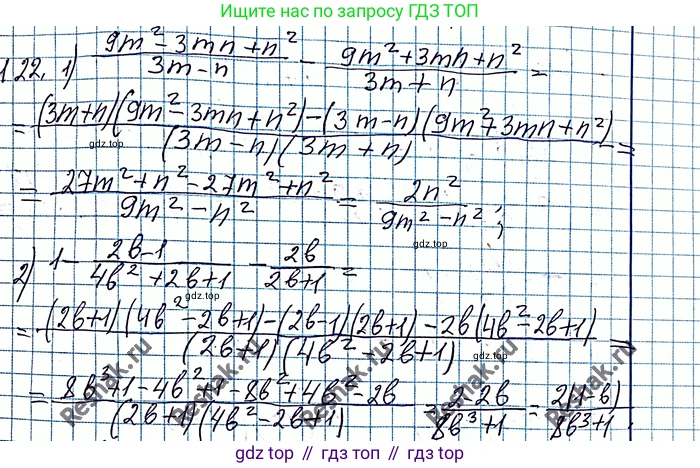 Ищите нас по запросу ГДЗ ТОП
1.22. 1) (9m² - 3mn + n²)/(3m - n) - (9m² + 3mn + n²)/(3m + n) =
= ((3m+n)(9m² - 3mn + n²) - (3m - n)(9m² + 3mn + n²))/((3m - n)(3m + n)) =
gdz.top
gdz.top
= (27m² + n² - 27m² + n²)/(9m² - n²) = 2n²/(9m² - n²);
gdz.top
2) 1 - (2b-1)/(4b² + 2b + 1) - 2b/(2b+1) =
gdz.top
gdz.top
= ((2b+1)(4b² - 2b + 1) - (2b-1)(2b+1) - 2b(4b² - 2b + 1))/((2b+1)(4b² - 2b + 1)) =
= (8b³ + 1 - 4b² + 1 - 8b² + 4b² - 2b)/((2b+1)(4b² - 2b + 1)) = (2 - 2b)/(8b³ + 1) = 2(1-b)/(8b³ + 1).
Reshak.ru
Reshak.ru
Reshak.ru
Reshak.ru
gdz.top / гдз топ / гдз.топ